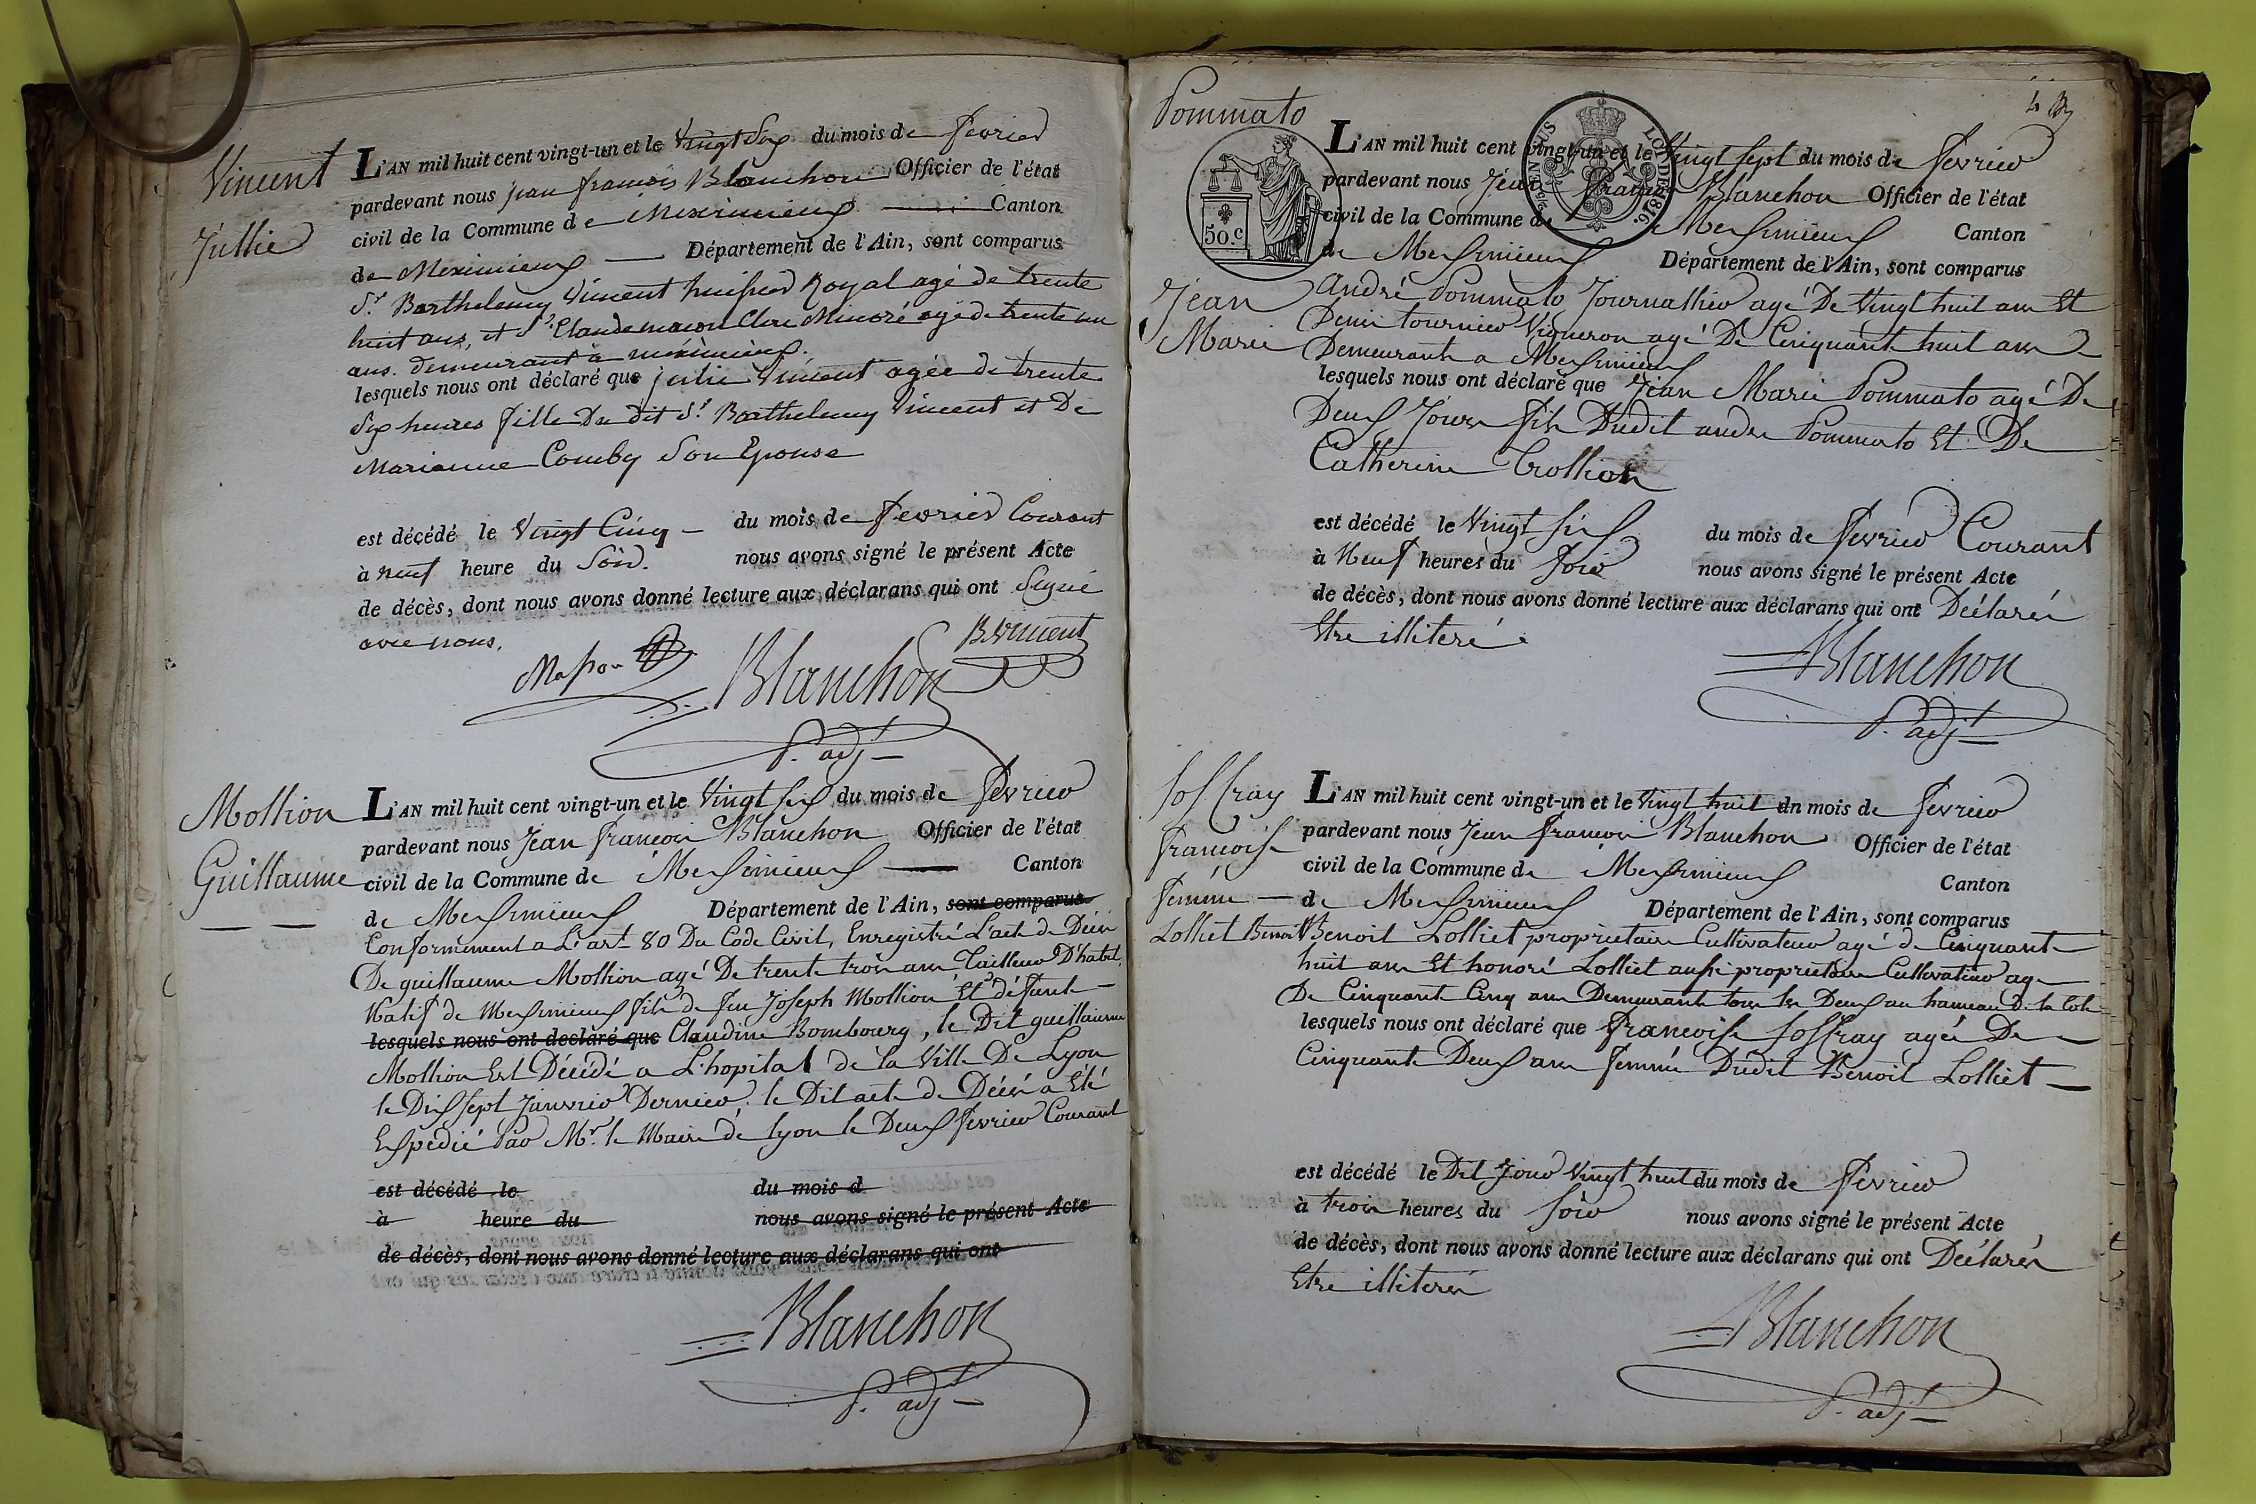 Vincent
Jullie
L'AN mil huit cent vingt-un et le vingt Six du mois de fevrier
pardevant nous jean francois Blanchon Officier de l'état
civil de la Commune de Meximieux Canton
de Meximieux Département de l'Ain, sont comparus
Sr. Barthelemy Vincent huissier Royal agé de trente
huit ans, et Sr. Claude macon Clerc agé de trente un
ans. demeurant à méximieux.
lesquels nous ont déclaré que julie Vincent agée de trente
Six heures fille Du dit Sr. Barthelemy Vincent et De
Marianne Comby Son Epouse
est décédé le Vingt Cinq du mois de fevrier Courant
à neuf heure du Soir. nous avons signé le présent Acte
de décès, dont nous avons donné lecture aux déclarans qui ont Signé
avec nous.
B Vincent
Blanchon
P. adjt
Mollion
Guillaume
L'AN mil huit cent vingt-un et le Vingt six du mois de fevrier
pardevant nous Jean francois Blanchon Officier de l'état
civil de la Commune de Messimieux Canton
de Messimieux Département de l'Ain, sont comparus
Conformement a L'art 80 Du Code Civil, Enregistré L'acte de Décès
De guillaume Mollion agé De trente trois ans Tailleur D'habit,
Natif de Messimieux fils de feu Joseph Mollion Et défunte
lesquels nous ont declaré que Claudine Bombourg, le Dit guillaume
Mollion Est Décédé a L'hopital de la Ville De Lyon
le Dix sept Janvier Dernier. le Dit acte de Décès a Eté
Expedié Par Mr. le Maire de lyon le Deux fevrier Courant
est décédé le du mois d
à heure du nous avons signé le présent Acte
de décès, dont nous avons donné lecture aux déclarans qui ont
Blanchon
P. adjt
Pommato
50.c
LOI DE 1816.
Jean
Marie
L'AN mil huit cent vingt-un et le Vingt sept du mois de fevrier
pardevant nous Jean francois Blanchon Officier de l'état
civil de la Commune de Messimieux Canton
de Messimieux Département de l'Ain, sont comparus
André Pommato Journallier agé De Vingt huit ans Et
Denis tournier Vigneron agé De Cinquante huit ans
Demeurants a Messimieux
lesquels nous ont déclaré que Jean Marie Pommato agé De
Deux Jours fils Dudit andré Pommato Et De
Catherine Trollion
est décédé le Vingt six du mois de fevrier Courant
à Neuf heures du soir nous avons signé le présent Acte
de décès, dont nous avons donné lecture aux déclarans qui ont Déclarés
Etre illiteré.
Blanchon
P. adjt
Joffray
francoise
femme
Lolliet Benoit
L'AN mil huit cent vingt-un et le Vingt huit du mois de fevrier
pardevant nous Jean francois Blanchon Officier de l'état
civil de la Commune de Messimieux Canton
de Messimieux Département de l'Ain, sont comparus
Benoit Lolliet proprietaire Cultivateur agé de Cinquante
huit ans Et honoré Lolliet aussi proprietaire Cultivateur agé
De Cinquante Cinq ans Demeurants tous les Deux au hameau de la Cote
lesquels nous ont déclaré que francoise Joffray agée De
Cinquante Deux ans femme Dudit Benoit Lolliet
est décédé le Dit Jour Vingt huit du mois de fevrier
à trois heures du soir nous avons signé le présent Acte
de décès, dont nous avons donné lecture aux déclarans qui ont Déclarés
Etre illiterés
Blanchon
P. adjt